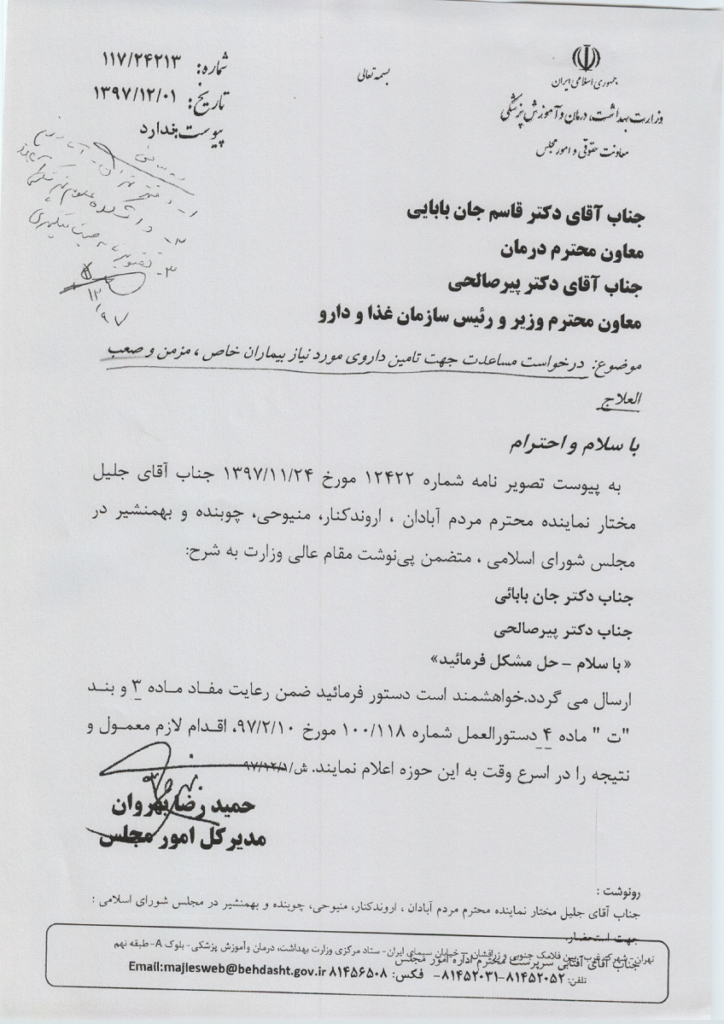 بسمه تعالی
جمهوری اسلامی ایران
وزارت بهداشت، درمان و آموزش پزشکی
معاونت حقوقی و امور مجلس
شماره: ۱۱۷/۲۴۲۱۳
تاریخ: ۱۳۹۷/۱۲/۰۱
پیوست: ندارد
۱-
۲- دانشکده علوم پزشکی آبادان
۳-
۱۲
۹۷
جناب آقای دکتر قاسم جان بابایی
معاون محترم درمان
جناب آقای دکتر پیرصالحی
معاون محترم وزیر و رئیس سازمان غذا و دارو
موضوع: درخواست مساعدت جهت تامین داروی مورد نیاز بیماران خاص ، مزمن و صعب
العلاج
با سلام و احترام
به پیوست تصویر نامه شماره ۱۲۴۲۲ مورخ ۱۳۹۷/۱۱/۲۴ جناب آقای جلیل
مختار نماینده محترم مردم آبادان ، اروندکنار، منیوحی، چوبنده و بهمنشیر در
مجلس شورای اسلامی ، متضمن پی‌نوشت مقام عالی وزارت به شرح:
جناب دکتر جان بابائی
جناب دکتر پیرصالحی
«با سلام – حل مشکل فرمائید»
ارسال می گردد.خواهشمند است دستور فرمائید ضمن رعایت مفاد ماده ۳ و بند
"ت " ماده ۴ دستورالعمل شماره ۱۰۰/۱۱۸ مورخ ۹۷/۲/۱۰، اقدام لازم معمول و
نتیجه را در اسرع وقت به این حوزه اعلام نمایند. ش/۹۷/۱۲/۱
حمید رضا بهروان
مدیرکل امور مجلس
رونوشت :
جناب آقای جلیل مختار نماینده محترم مردم آبادان ، اروندکنار، منیوحی، چوبنده و بهمنشیر در مجلس شورای اسلامی :
جهت استحضار
جناب آقای آفتابی سرپرست محترم اداره امور مجلس
تهران- شهرک غرب- بین فلامک جنوبی و زرافشان - خیابان سیمای ایران- ستاد مرکزی وزارت بهداشت، درمان وآموزش پزشکی- بلوک A-طبقه نهم
تلفن: ۸۱۴۵۲۰۵۲-۸۱۴۵۲۰۳۱- فکس: ۸۱۴۵۶۵۰۸ Email:majlesweb@behdasht.gov.ir